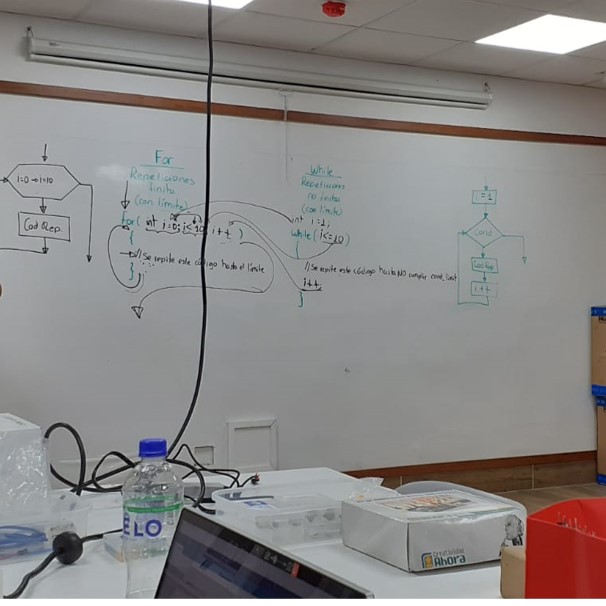 i=0→i=10
Cod Rep.
For
Repeticiones
finito
(con límite)
for( int i=0; i<10; i++ )
{
//Se repite este código hasta el límite
}
While
Repeticiones
no finita
(con límite)
int i=1;
while (i<=10)
{
//Se repite este código hasta NO cumplir
i++
}
i=1
Cond
Cod Rep
i++
ELO
Creatividad
Ahora